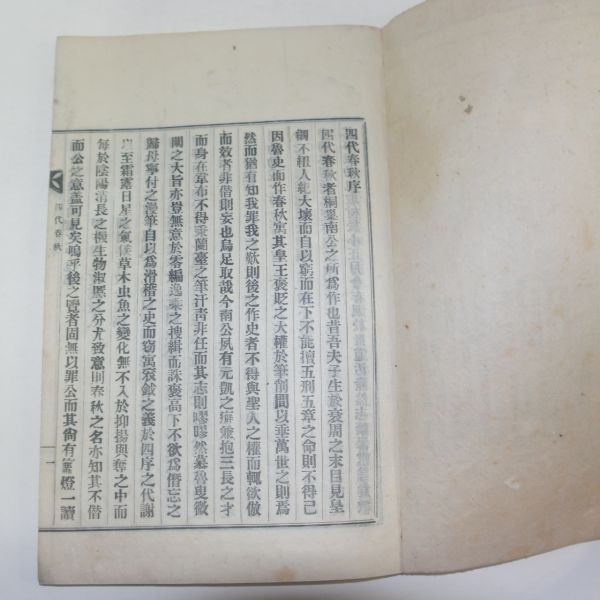 四代春秋序
四代春秋者桐巢南公之所爲作也昔吾夫子生於衰周之末目見皇
綱不紐人紀大壞而自以窮而在下不能擅五刑五章之命則不得已
因魯史而作春秋寓其皇王褒貶之大權於筆削間以垂萬世之則焉
然而猶有知我罪我之歎則後之作史者不得與聖人之權而輒欲倣
而效者非僭則妄也烏足取哉今南公夙有元凱之癖兼抱三長之才
而身在韋布不得秉蘭臺之筆汗靑非任而其志則嘐嘐然慕魯叟微
闡之大旨亦豈無意於零編逸乘之搜緝而誅褒高下不欲爲僭忘之
歸毋寧付之漫筆自以爲滑稽之史而竊寓袞鉞之義於四序之代謝
至霜露日星之氣候草木虫魚之變化無不入於抑揚與奪之中而
每於陰陽消長之機生物淑慝之分尤致意則春秋之名亦知其不僭
而公之意盖可見矣嗚乎後之覽者固無以罪公而其尙有篝燈一讀
四代春秋
一